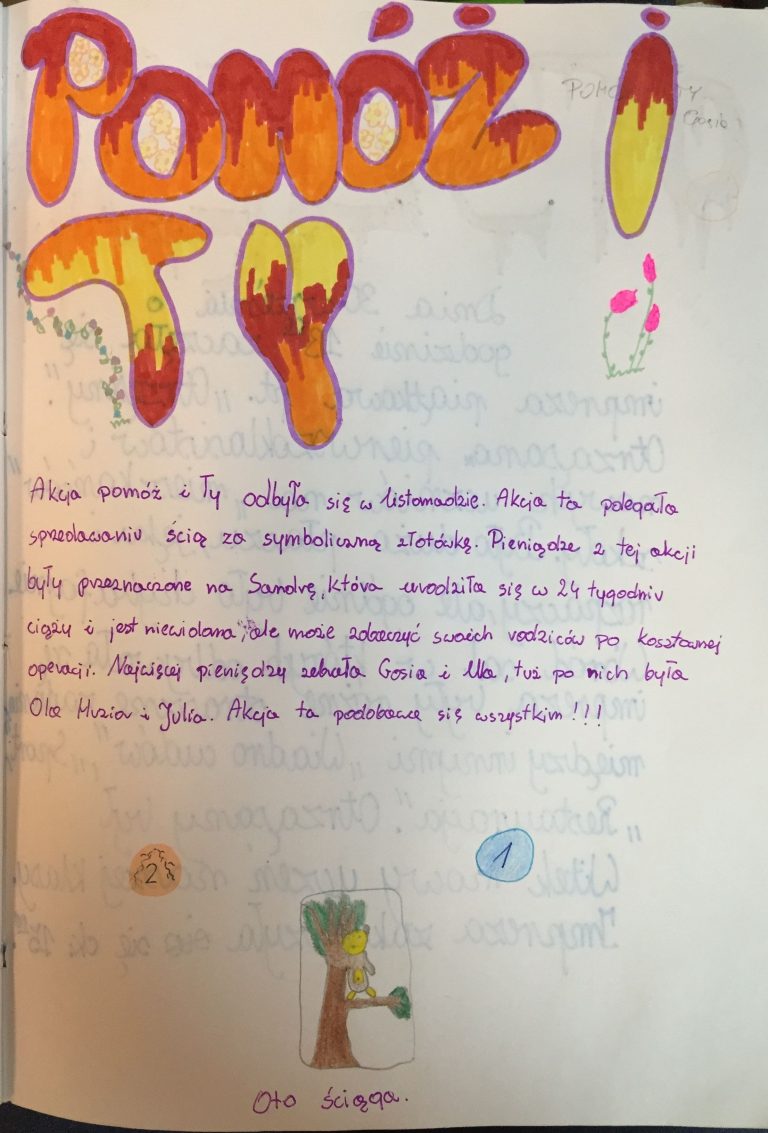 POMÓŻ i
TY
Akcja pomóż i Ty odbyła się w listomadzie. Akcja ta polegała
sprzedawaniu ściąg za symboliczną złotówkę. Pieniądze z tej akcji
były przeznaczone na Sandrę, która urodziła się w 24 tygodniu
ciąży i jest niewidoma, ale może zobaczyć swoich rodziców po kosztownej
operacji. Najwięcej pieniędzy zebrała Gosia i Ula, tuż po nich była
Ola i Julia. Akcja ta podobawa się wszystkim!!!
2
1
Oto ściąga.